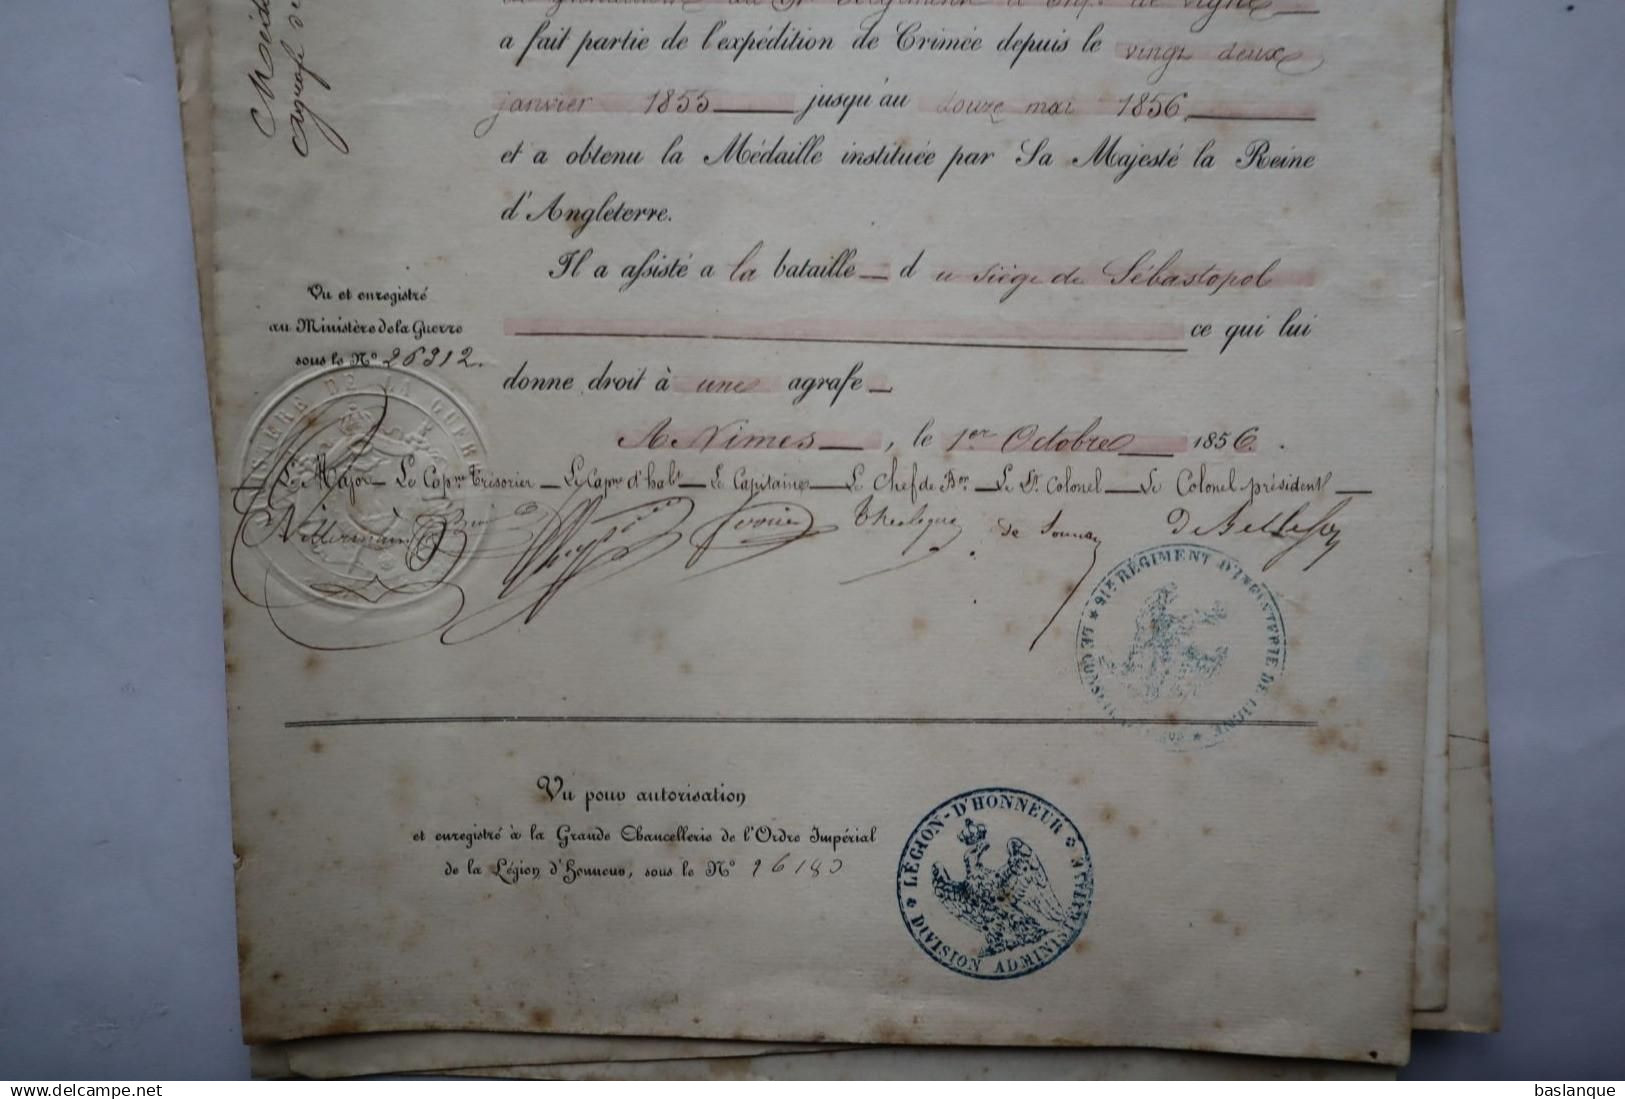 91e Régiment d'Infie de ligne
a fait partie de l'expédition de Crimée depuis le vingt deux
janvier 1855 jusqu'au douze mai 1856
et a obtenu la Médaille instituée par Sa Majesté la Reine
d'Angleterre.
Il a assisté a la bataille d u siège de Sébastopol
ce qui lui
donne droit à une agrafe
A Nimes, le 1er Octobre 1856.
Vu et enregistré
au Ministère de la Guerre
sous le No 26312.
MINISTÈRE DE LA GUERRE
Le Major Le Capne Trésorier Le Capne d'habt Le Capitaine Le Chef de Bon Le Lt Colonel Le Colonel président
Villermain
91e RÉGIMENT D'INFANTERIE DE LIGNE
Vu pour autorisation
et enregistré à la Grande Chancellerie de l'Ordre Impérial
de la Légion d'Honneur, sous le No 26183
LÉGION-D'HONNEUR
DIVISION ADMINISTRATIVE
the-best-stamps.com
baslanque